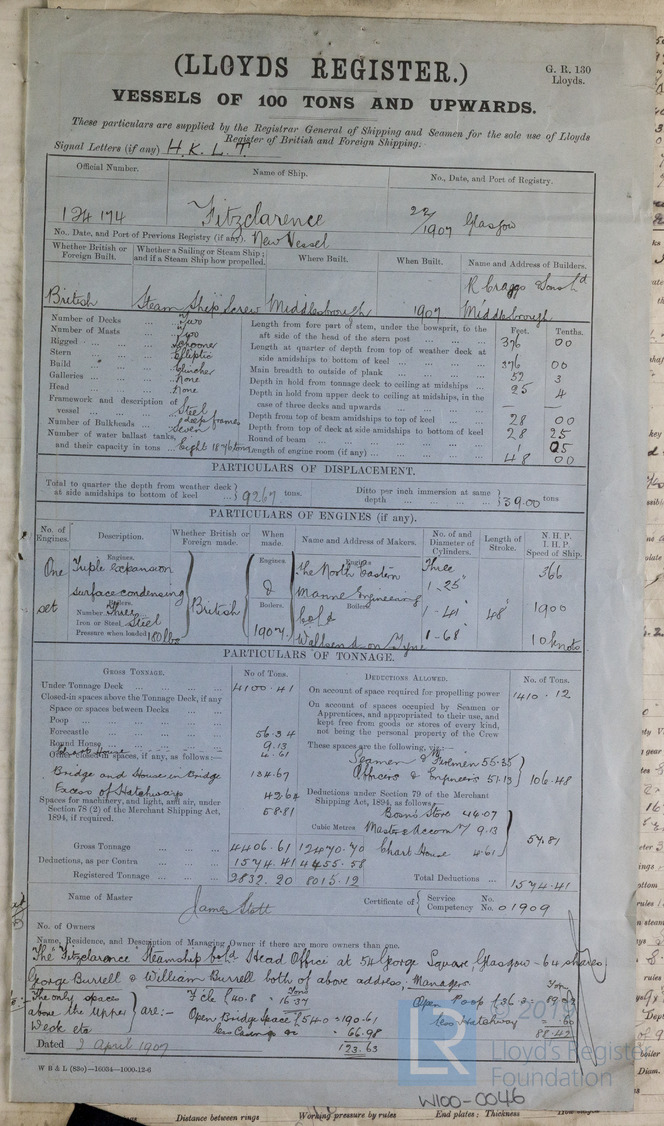 (LLOYDS REGISTER.)
G. R. 130
Lloyds.
VESSELS OF 100 TONS AND UPWARDS.
These particulars are supplied by the Registrar General of Shipping and Seamen for the sole use of Lloyds
Register of British and Foreign Shipping.
Signal Letters (if any) H. K. L. T.
Official Number. Name of Ship. No., Date, and Port of Registry.
124174 Fitzclarence 22/1907 Glasgow
No., Date, and Port of Previous Registry (if any). New Vessel
Whether British or Foreign Built. Whether a Sailing or Steam Ship; and if a Steam Ship how propelled. Where Built. When Built. Name and Address of Builders.
British Steam Ship Screw Middlesbrough 1907 R Craggs & Sons Ld Middlesbrough
Number of Decks ... Two
Number of Masts ... Two
Rigged ... Schooner
Stern ... Elliptic
Build ... Clincher
Galleries ... None
Head ... None
Framework and description of vessel ... Steel deep frames
Number of Bulkheads ... Seven
Number of water ballast tanks, and their capacity in tons ... Eight 1876 tons
Feet. Tenths.
Length from fore part of stem, under the bowsprit, to the aft side of the head of the stern post ... 376 00
Length at quarter of depth from top of weather deck at side amidships to bottom of keel ... 376 00
Main breadth to outside of plank ... 52 3
Depth in hold from tonnage deck to ceiling at midships ... 25 4
Depth in hold from upper deck to ceiling at midships, in the case of three decks and upwards ... — —
Depth from top of beam amidships to top of keel ... 28 00
Depth from top of deck at side amidships to bottom of keel 28 25
Round of beam ... 1 05
Length of engine room (if any) ... 48 00
PARTICULARS OF DISPLACEMENT.
Total to quarter the depth from weather deck at side amidships to bottom of keel ... 9267 tons.
Ditto per inch immersion at same depth ... 39.00 tons
PARTICULARS OF ENGINES (if any).
No. of Engines. Description. Whether British or Foreign made. When made. Name and Address of Makers. No. of and Diameter of Cylinders. Length of Stroke. N. H. P. I. H. P. Speed of Ship.
One set
Engines.
Triple expansion
surface condensing
Boilers.
Number Three
Iron or Steel Steel
Pressure when loaded 180 lbs
British
Engines
Boilers.
1907
Engines.
The North Eastern
Marine Engineering
Boilers.
Co Ld
Wallsend on Tyne
Three
1-25"
1-41"
1-68"
48"
366
1900
10 knots
PARTICULARS OF TONNAGE.
GROSS TONNAGE. No. of Tons.
Under Tonnage Deck ... 4100.41
Closed-in spaces above the Tonnage Deck, if any
Space or spaces between Decks ...
Poop ...
Forecastle ... 56.34
Round House ... 9.13
Chart House 4.61
Other closed-in spaces, if any, as follows:—
Bridge and House in Bridge 134.67
Excess of Hatchways 42.64
Spaces for machinery, and light, and air, under Section 78 (2) of the Merchant Shipping Act, 1894, if required. 58.81
Cubic Metres
Gross Tonnage ... 4406.61 12470.70
Deductions, as per Contra ... 1574.41 4455.58
Registered Tonnage ... 2832.20 8015.12
DEDUCTIONS ALLOWED. No. of Tons.
On account of space required for propelling power 1410.12
On account of spaces occupied by Seamen or Apprentices, and appropriated to their use, and kept free from goods or stores of every kind, not being the personal property of the Crew
These spaces are the following, viz.:—
Seamen & Firemen 55.35
Officers & Engineers 51.13
106.48
Deductions under Section 79 of the Merchant Shipping Act, 1894, as follows:
Bosn's Store 44.07
Masters Accom 9.13
Chart House 4.61
57.81
Total Deductions ... 1574.41
Name of Master James Stott
Certificate of Service No.
Competency No. 01909
No. of Owners
Name, Residence, and Description of Managing Owner if there are more owners than one.
The "Fitzclarence" Steamship Co Ld Head Office at 54 George Square, Glasgow - 64 shares
George Burrell & William Burrell both of above address, Managers
Note:- The only spaces above the Upper Deck etc are:-
F'cle 40.8 = 16.37
Open Bridge Space 540 = 190.61
less Casings 66.98
123.63
Tons
Open Poop 36.2 =
less Hatchway
88.42
Dated 2 April 1907
W B & L (83o)—16034—1000-12-6
W100-0046
© 2019
LR
Lloyd's Register
Foundation
Distance between rings Working pressure by rules End plates: Thickness